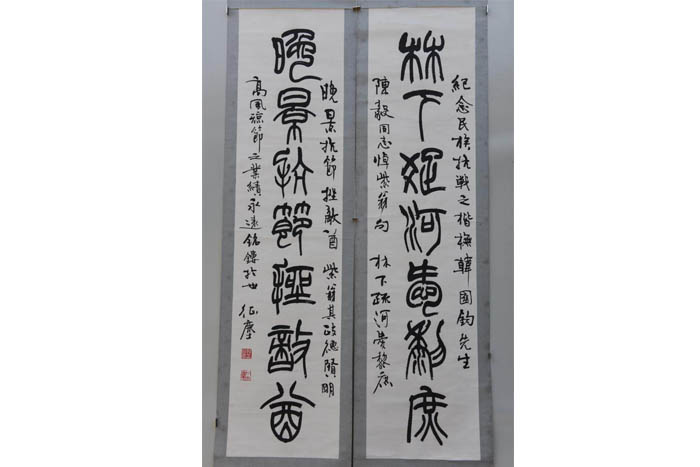 紀念民族抗戰之楷模韓国鈞先生
林下疏河愛黎庶
陳毅同志悼紫翁句 林下疏河愛黎庶
晚景抗節挫敵酋 紫翁其政德賢明
晚景抗節挫敵酋
高風節之業績永遠銘鏤於世 征塵